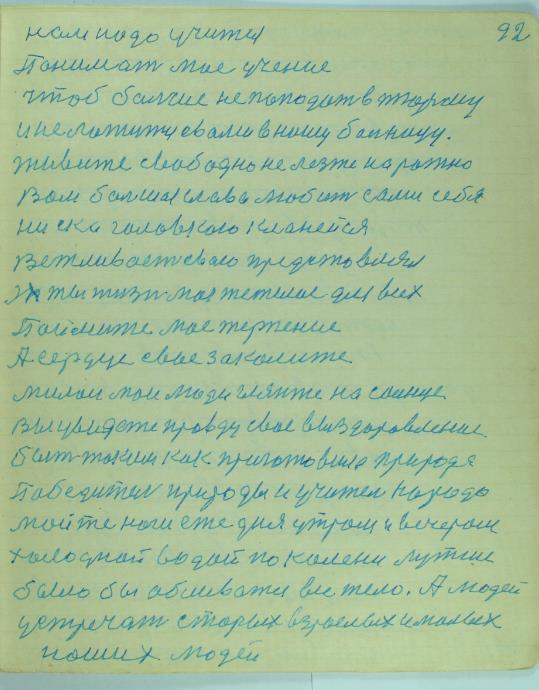 92
нам надо учится
Понимат мое учение
чтоб болчие не пападат в тюрму
и не ложитися вами в нашу болницу.
живите свободно не лезте на ражно
Вам болшая слава любит сами себя
ниска головкою кланейся
Вежливаест свою предстовлял
Эх ты жизн моя тежелое для всех
Поймите мое терпение
А сердце свое заколите
милаи мои люди глянте на солнце
Вы увидете правду свое выздоровление
быт таким как приготовила природа
Победител природы и учител народа
мойте ноги еже дня утром и вечером
холодной водой по колени лутше
было бы обливати все тело. А людей
устречат старых взрослых и малых
наших людей